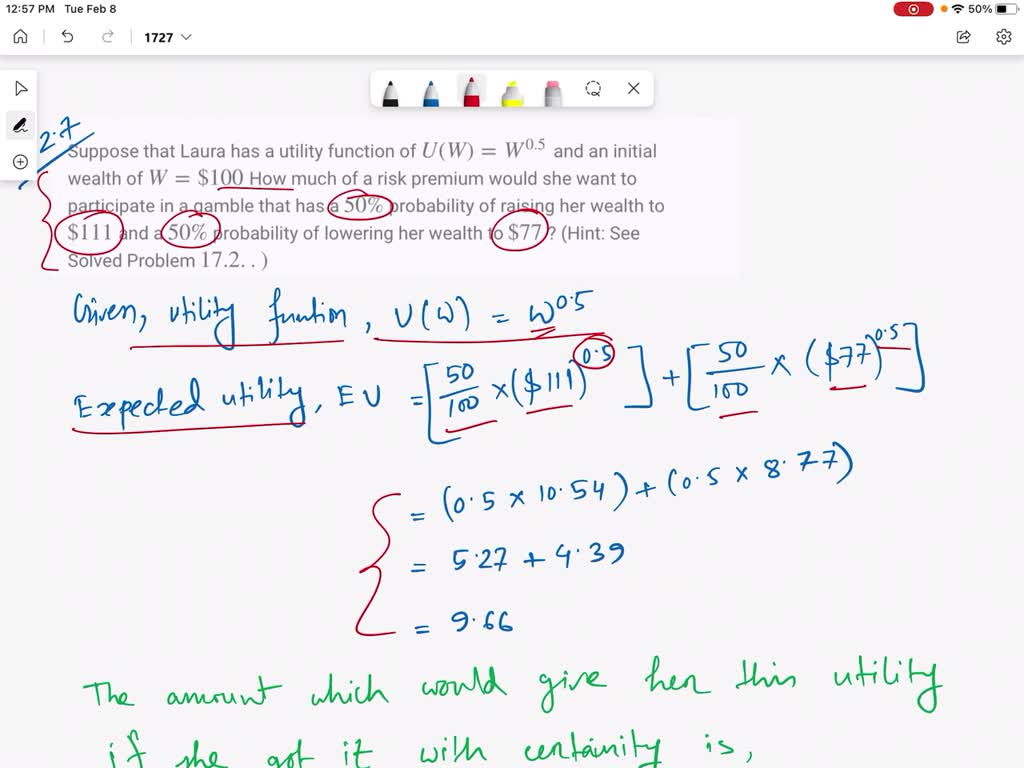 12:57 PM Tue Feb 8
50%
1727
2.7
Suppose that Laura has a utility function of U(W) = W^0.5 and an initial
wealth of W = $100 How much of a risk premium would she want to
participate in a gamble that has a 50% probability of raising her wealth to
$111 and a 50% probability of lowering her wealth to $77? (Hint: See
Solved Problem 17.2. . )
Given, utility function, U(W) = W^0.5
Expected utility, EU = [50/100 × ($111)^0.5] + [50/100 × ($77)^0.5]
= (0.5 × 10.54) + (0.5 × 8.77)
= 5.27 + 4.39
= 9.66
The amount which would give her this utility
if she got it with certainity is,